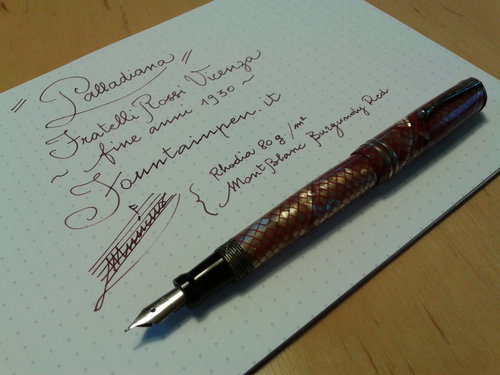 = Palladiana =
Fratelli Rossi Vicenza
~ fine anni 1930 ~
Fountainpen.it
{ Rhodia 80g/m²
MontBlanc Burgundy Red